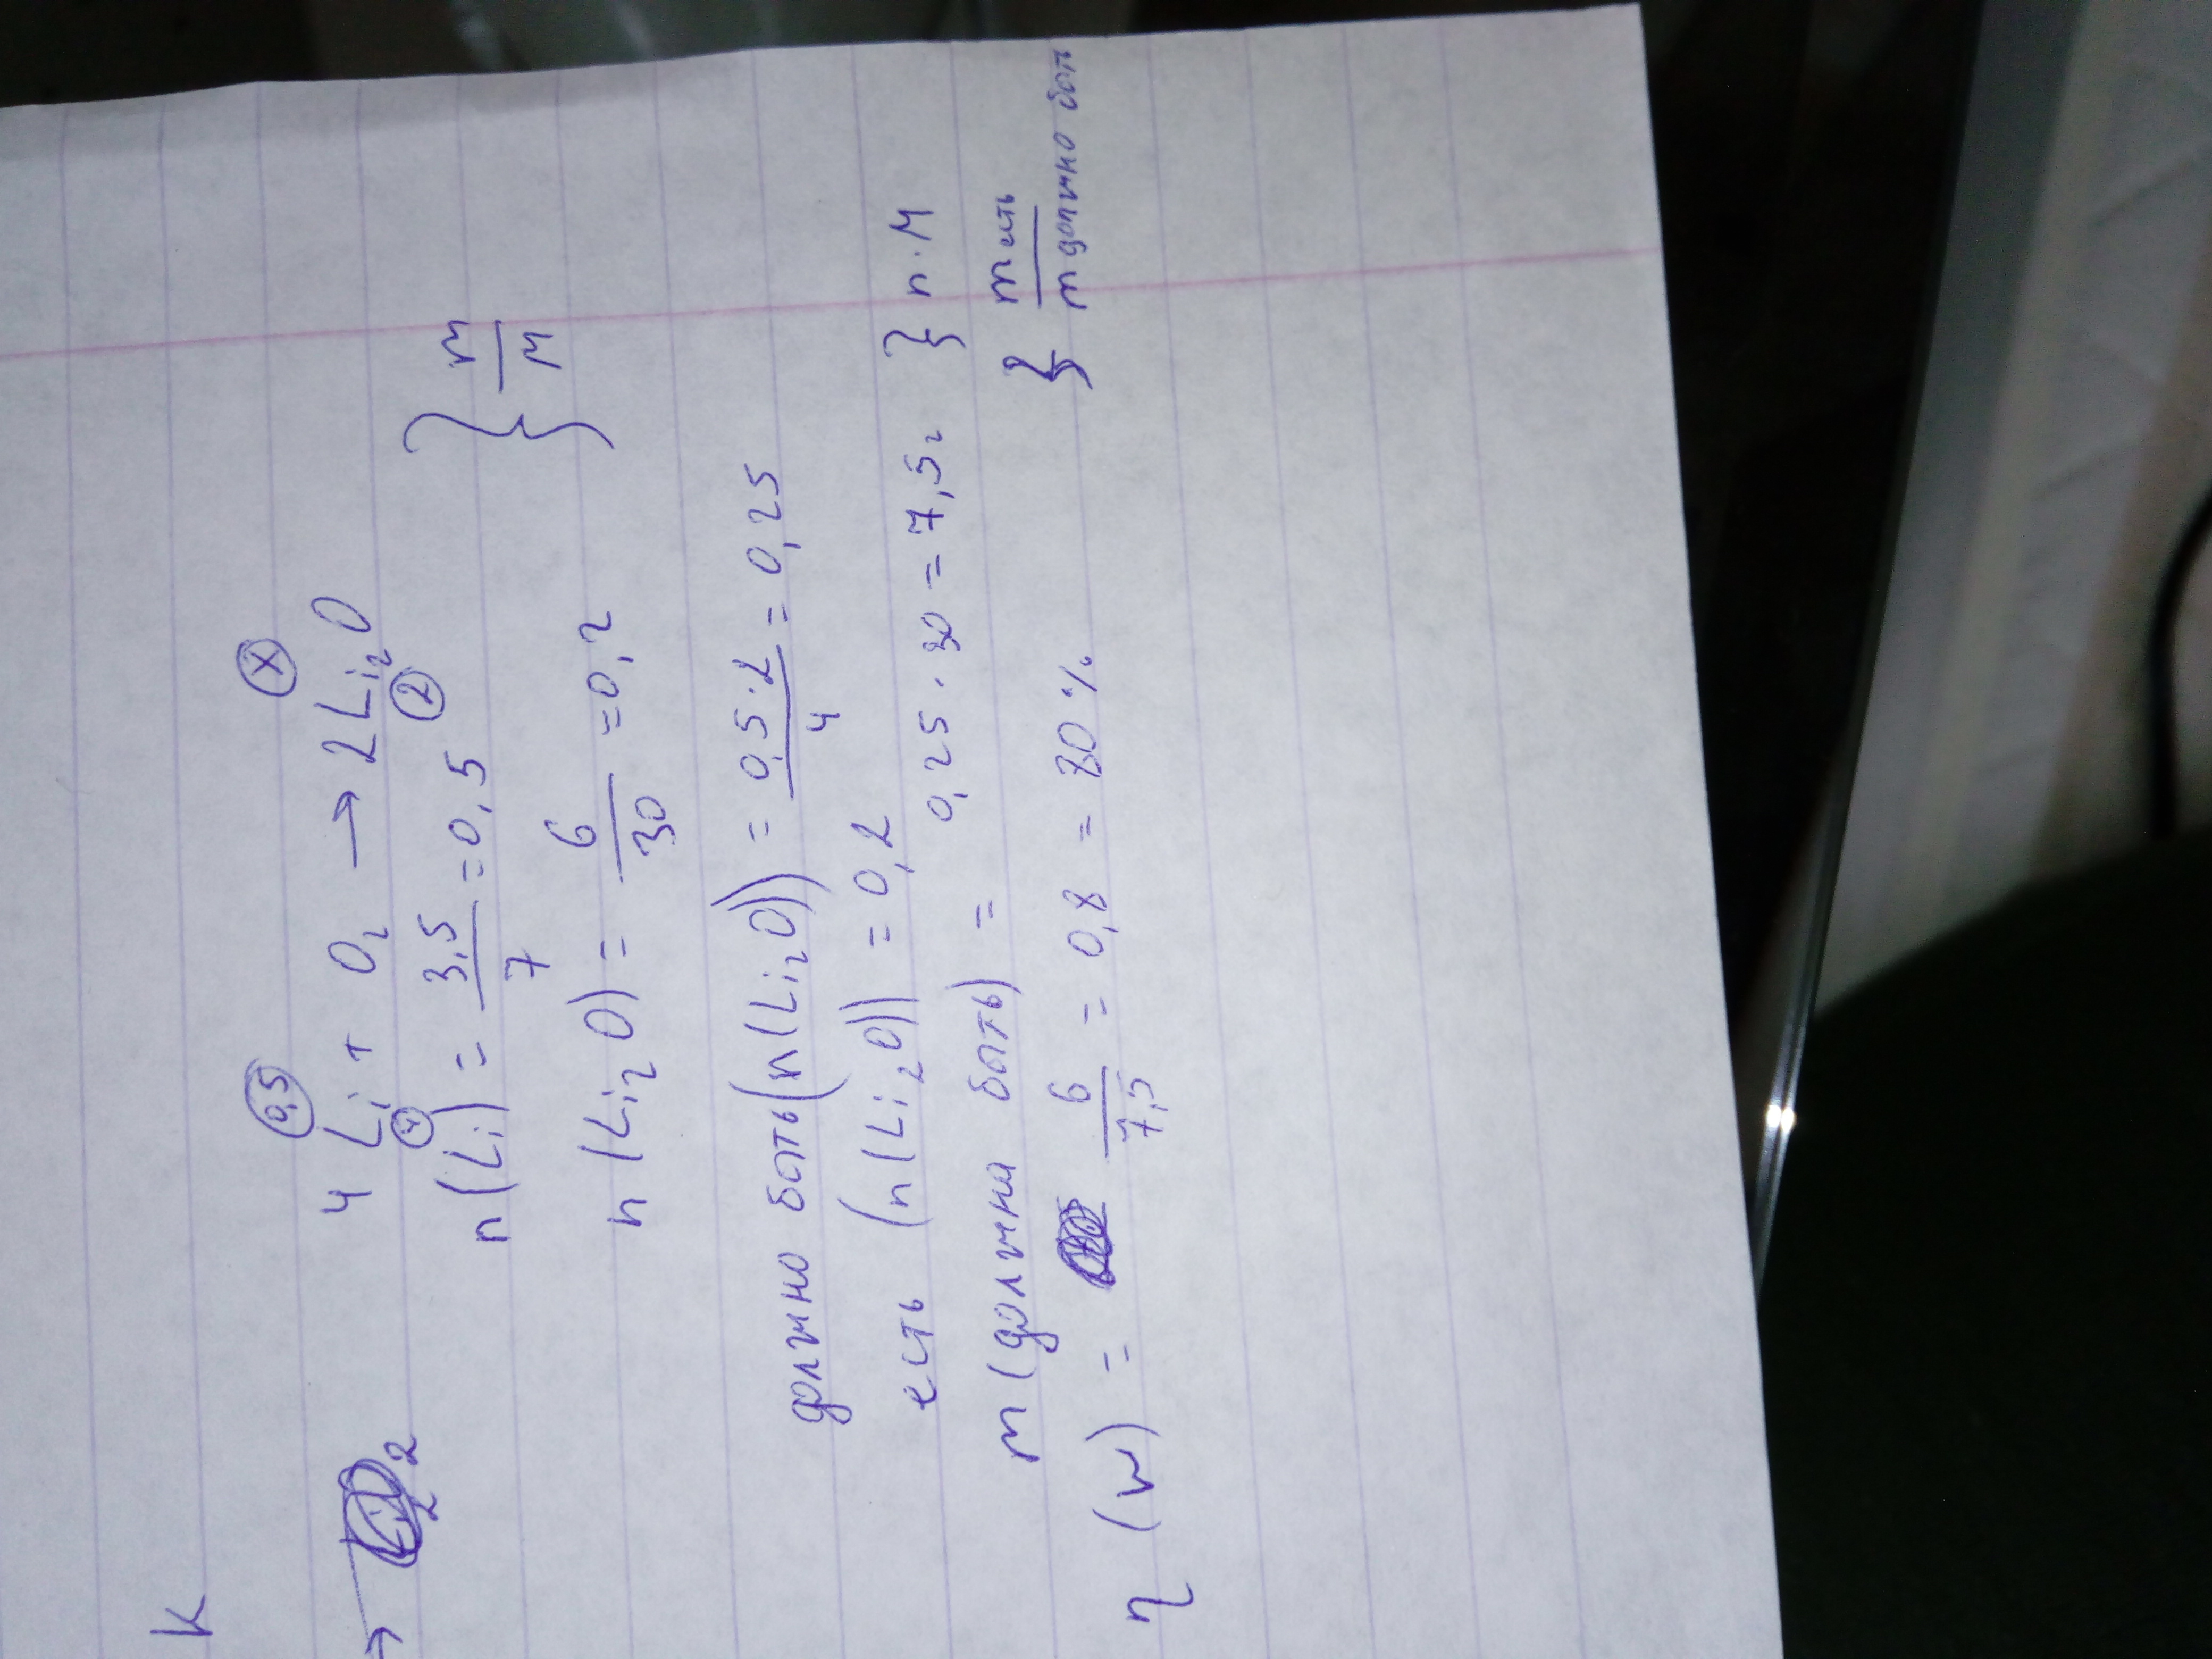 К
0,5 X
4 Li + O2 → 2Li2O
4 2
→ 2
n(Li) = 3,5/7 = 0,5 } m/M
n(Li2O) = 6/30 = 0,2
должно быть (n(Li2O)) = 0,5·2/4 = 0,25
есть (n(Li2O)) = 0,2
m (должна быть) = 0,25 · 30 = 7,5г } n·M
η (w) = 6/7,5 = 0,8 = 80% } m есть/m должно быть